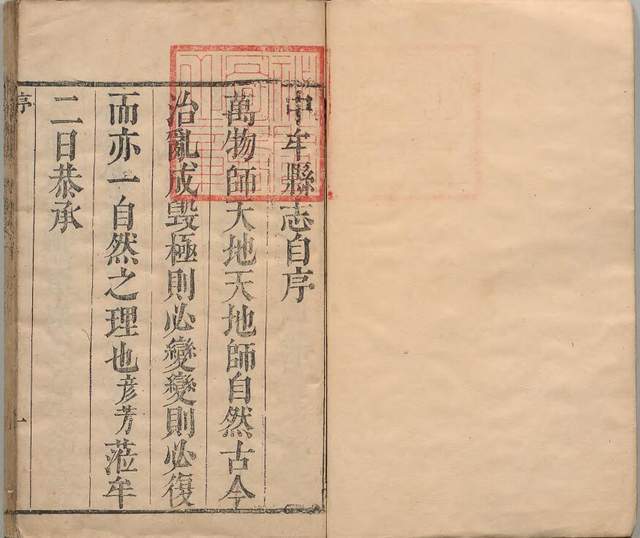 中牟縣志自序
萬物師天地天地師自然古今
治亂成毀極則必變變則必復
而亦一自然之理也彥芳蒞牟
二日恭承
序
一